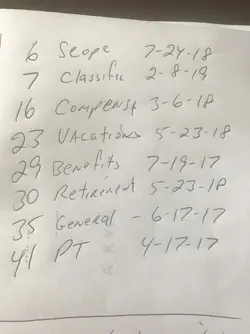 6 Scope 7-24-18
7 Classific 2-8-19
16 Compensa 3-6-18
23 VAcations 5-23-18
29 Benefits 7-19-17
30 Retirement 5-23-18
35 General - 6-17-17
41 PT 4-17-17